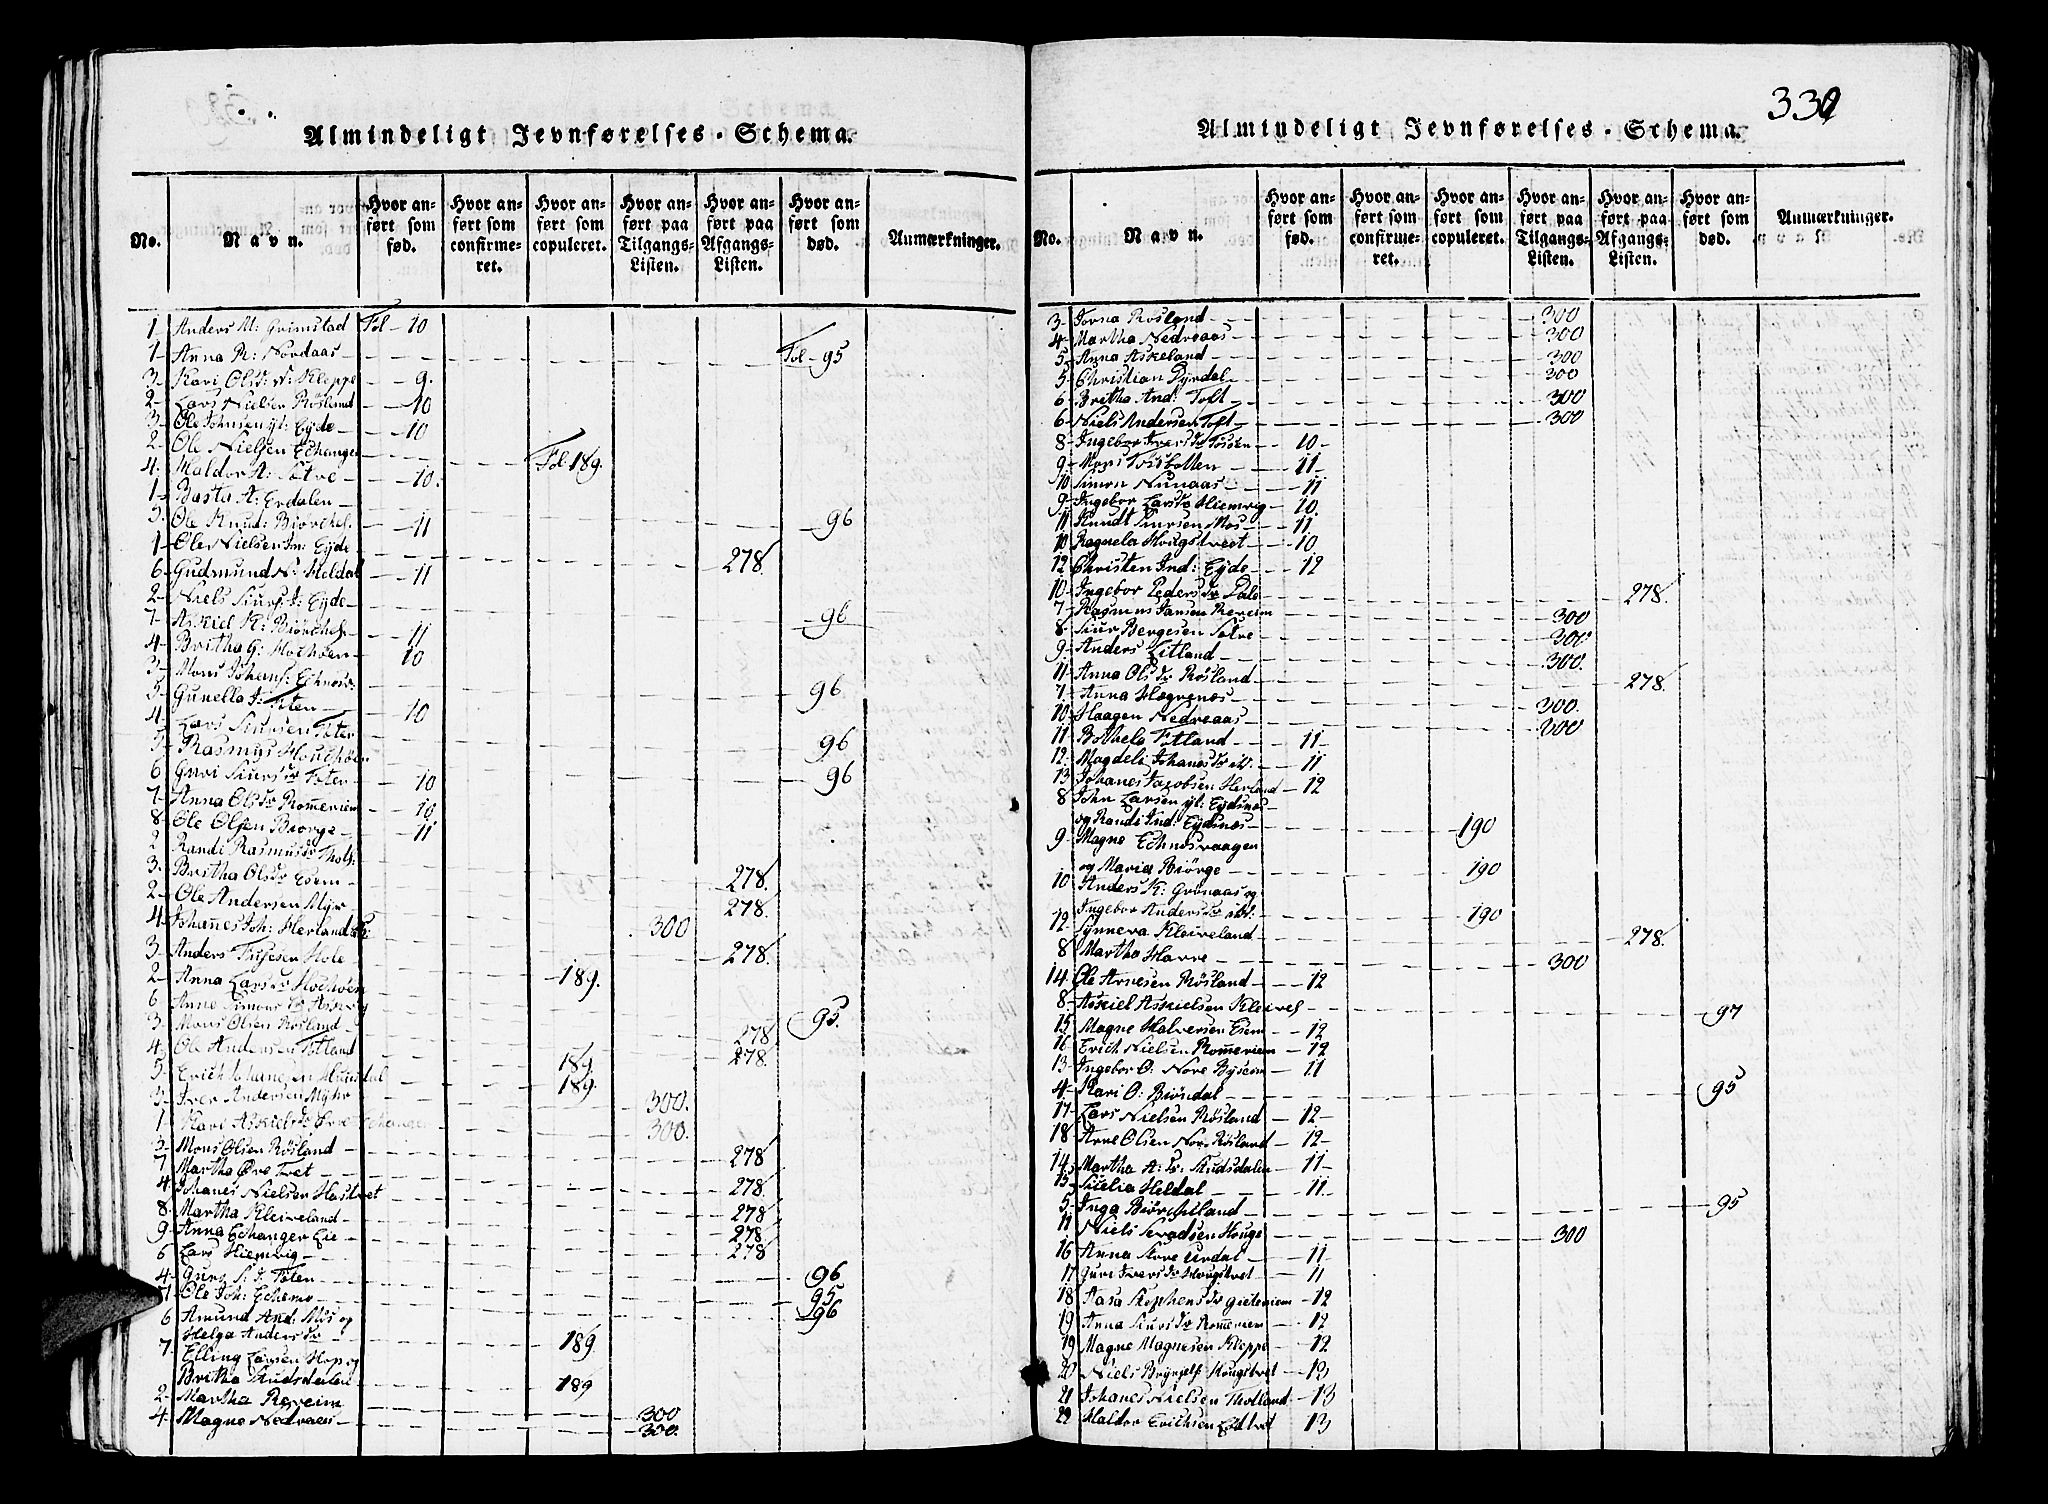 330
Almindeligt Jevnførelses-Schema.
No.
Navn.
Hvor anført som fød.
Hvor anført som confirmeret.
Hvor anført som copuleret.
Hvor anført paa Tilgangs-Listen.
Hvor anført paa Afgangs-Listen.
Hvor anført som død.
Anmærkninger.
1 Anders M: Grimstad Fol 10
1 Anna R: Nordaas Fol 95
3 Kari Olsd: Kleppe 9.
2 Lars Nielsen Røsland 10
3 Ole Johnsen yt: Eyde 10
2 Ole Nielsen Echanger Fol 189.
4. Haldor A: Søtve 10.
1 Basta A: Erdalen 96
5. Ole Knud: Biørchef. 11
1 Ole Nielsen In: Eyde 278.
6 Gudmund N: Heldal 11
2 Niels Siurs: I: Eyde 96
7 Askiel K: Biørchef. 11
4 Britha G: Hochøen 10
3 Mons Johans: Echnes: 96
5 Gunella I: Toten 10
4. Lars Siursen Toten 96
5 Rasmus Houchøen 96
6 Guri Siursdr Toten 10
7 Anna Olsdr Romereim 10
8 Ole Olsen Biørge 11
2 Randi Rasmusdr Thotl: 278.
3. Britha Olsdr Esem 278.
2 Ole Andersen Myr 300
4. Johanes Joh: Herland 278.
3 Anders Hole 189.
2 Anna Larsdr Hochøen
6 Anne Simonsdr 95.
3 Mons Olsen Røsland 278
4. Ole Andersen Totland 189. 278.
5 Erich Johanesen 189.
3 Iver Andersen Myhr 300.
1 Kari Askielsdr 300.
3 Mons Olsen Røsland 278
7 Martha Øvre Tvet
4 Johanes Nielsen Hastvet 278
8 Martha Kleiveland 278
9 Anna Echanger Eie 278
6 Lars Hiemvig 278
4 Guro S: I: Toten 96
Ole Joh: Echemo 95
6 Amund And: Mos og 96
Helga Andersdr 189.
7. Elling Larsen Hop og
Britha Skudsdalen 189
2 Martha Rereim 300
4. Magne Nedreaas 300.
Almindeligt Jevnførelses-Schema.
No.
Navn.
Hvor anført som fød.
Hvor anført som confirmeret.
Hvor anført som copuleret.
Hvor anført paa Tilgangs-Listen.
Hvor anført paa Afgangs-Listen.
Hvor anført som død.
Anmærkninger.
3 Torna Røsland 300
4 Martha Nedreaas 300
5 Anna Askeland 300
5 Christian Dyrdal 300
6 Britha And: Toft 300
6 Niels Andersen Toft 300
8 Ingebor Iversdr 10
9 Mons 11
10 Simon Nunaas 11
9 Ingebor Larsdr Hiemvig 10.
11 Knudt Siursen Mos 11
10 Ragnela Hougstvedt 10
12 Christen Ind: Eyde 12
10 Ingebor Pedersdr Dale 278.
7 Rasmus Jansen Rereim 300
8 Siur Bergesen Søtve 300
9 Anders Litland 300.
11 Anna Olsdr Røsland 278.
7 Anna Hægrenes 300.
10 Haagen Nedreaas 300
11 Bothele Totland 11
12 Magdeli Johanesdr ib. 11
13 Johanes Jacobsen Herland 12
8 John Larsen yt: Eydsnes
og Randi Ind: Eydsnes 190
9 Magne Echnesvaagen
og Maria Biørge 190
10 Anders K: Grønaas og
Ingebor Andersdr ibl. 190
12 Synneva Kleiveland 278.
8 Martha Harre 300
14 Ole Arnesen Røsland 12
8 Askiel Askielsen Kleivel 97
15 Magne Halversen Esem 12
16 Erich Nielsen Romereim 12
13 Ingebor O: Nore Byseim 11
4 Kari O: Biørsdal 95
17 Lars Nielsen Røsland 12
18 Arne Olsen Nor: Røsland 12
14 Martha A: Dr Skudsdalen 11
15 Siselia Heldal 11.
5 Inga Biørchiland 95
11 Niels Hougs 300
16 Anna Store Urdal 11
17 Guri Iversdr Hougstvet 11
18 Aasa Stephensdr Gieteriem 12
19 Anna Siursdr Romereim 12
19 Magne Magnesen Kleppe 12
20 Niels Brynjels Hougstvet 13
21 Johanes Nielsen Thotland 13
22 Haldor Erichsen Lødtvet 13